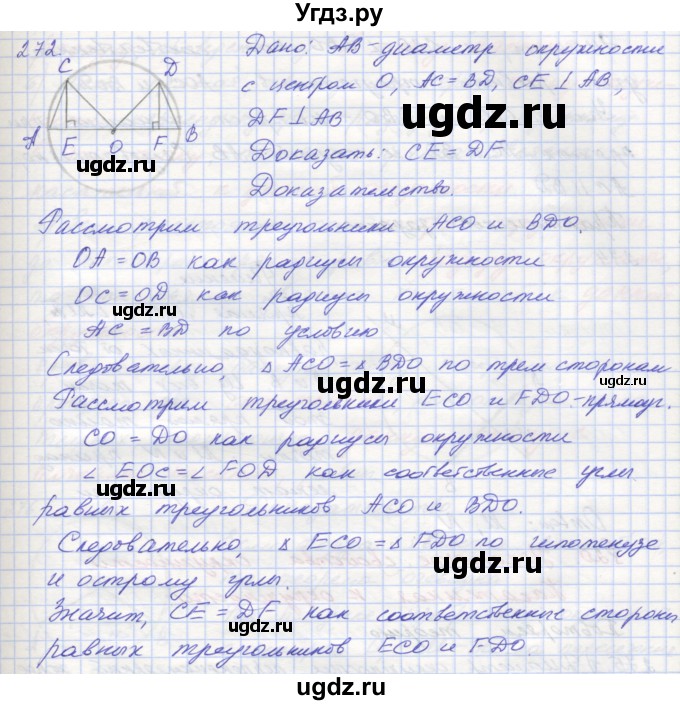 Угдз.ру
272.
C D
A E O F B
Дано: AB-диаметр окружности
с центром O, AC=BD, CE⊥AB,
DF⊥AB
Доказать: CE=DF
Доказательство.
Рассмотрим треугольники ACO и BDO.
OA=OB как радиусы окружности
OC=OD как радиусы окружности
AC=BD по условию
Следовательно, △ ACO=△ BDO по трем сторонам
Рассмотрим треугольники ECO и FDO-прямоуг.
CO=DO как радиусы окружности
∠ EOC=∠ FOD как соответственные углы
равных треугольников ACO и BDO.
Следовательно, △ ECO=△ FDO по гипотенузе
и острому углы.
Значит, CE=DF как соответственные стороны
равных треугольников ECO и FDO
ugdz.ru
ugdz.ru
ugdz.ru
ugdz.ru
ugdz.ru
ugdz.ru
ugdz.ru
ugdz.ru
ugdz.ru
ugdz.ru
ugdz.ru
ugdz.ru